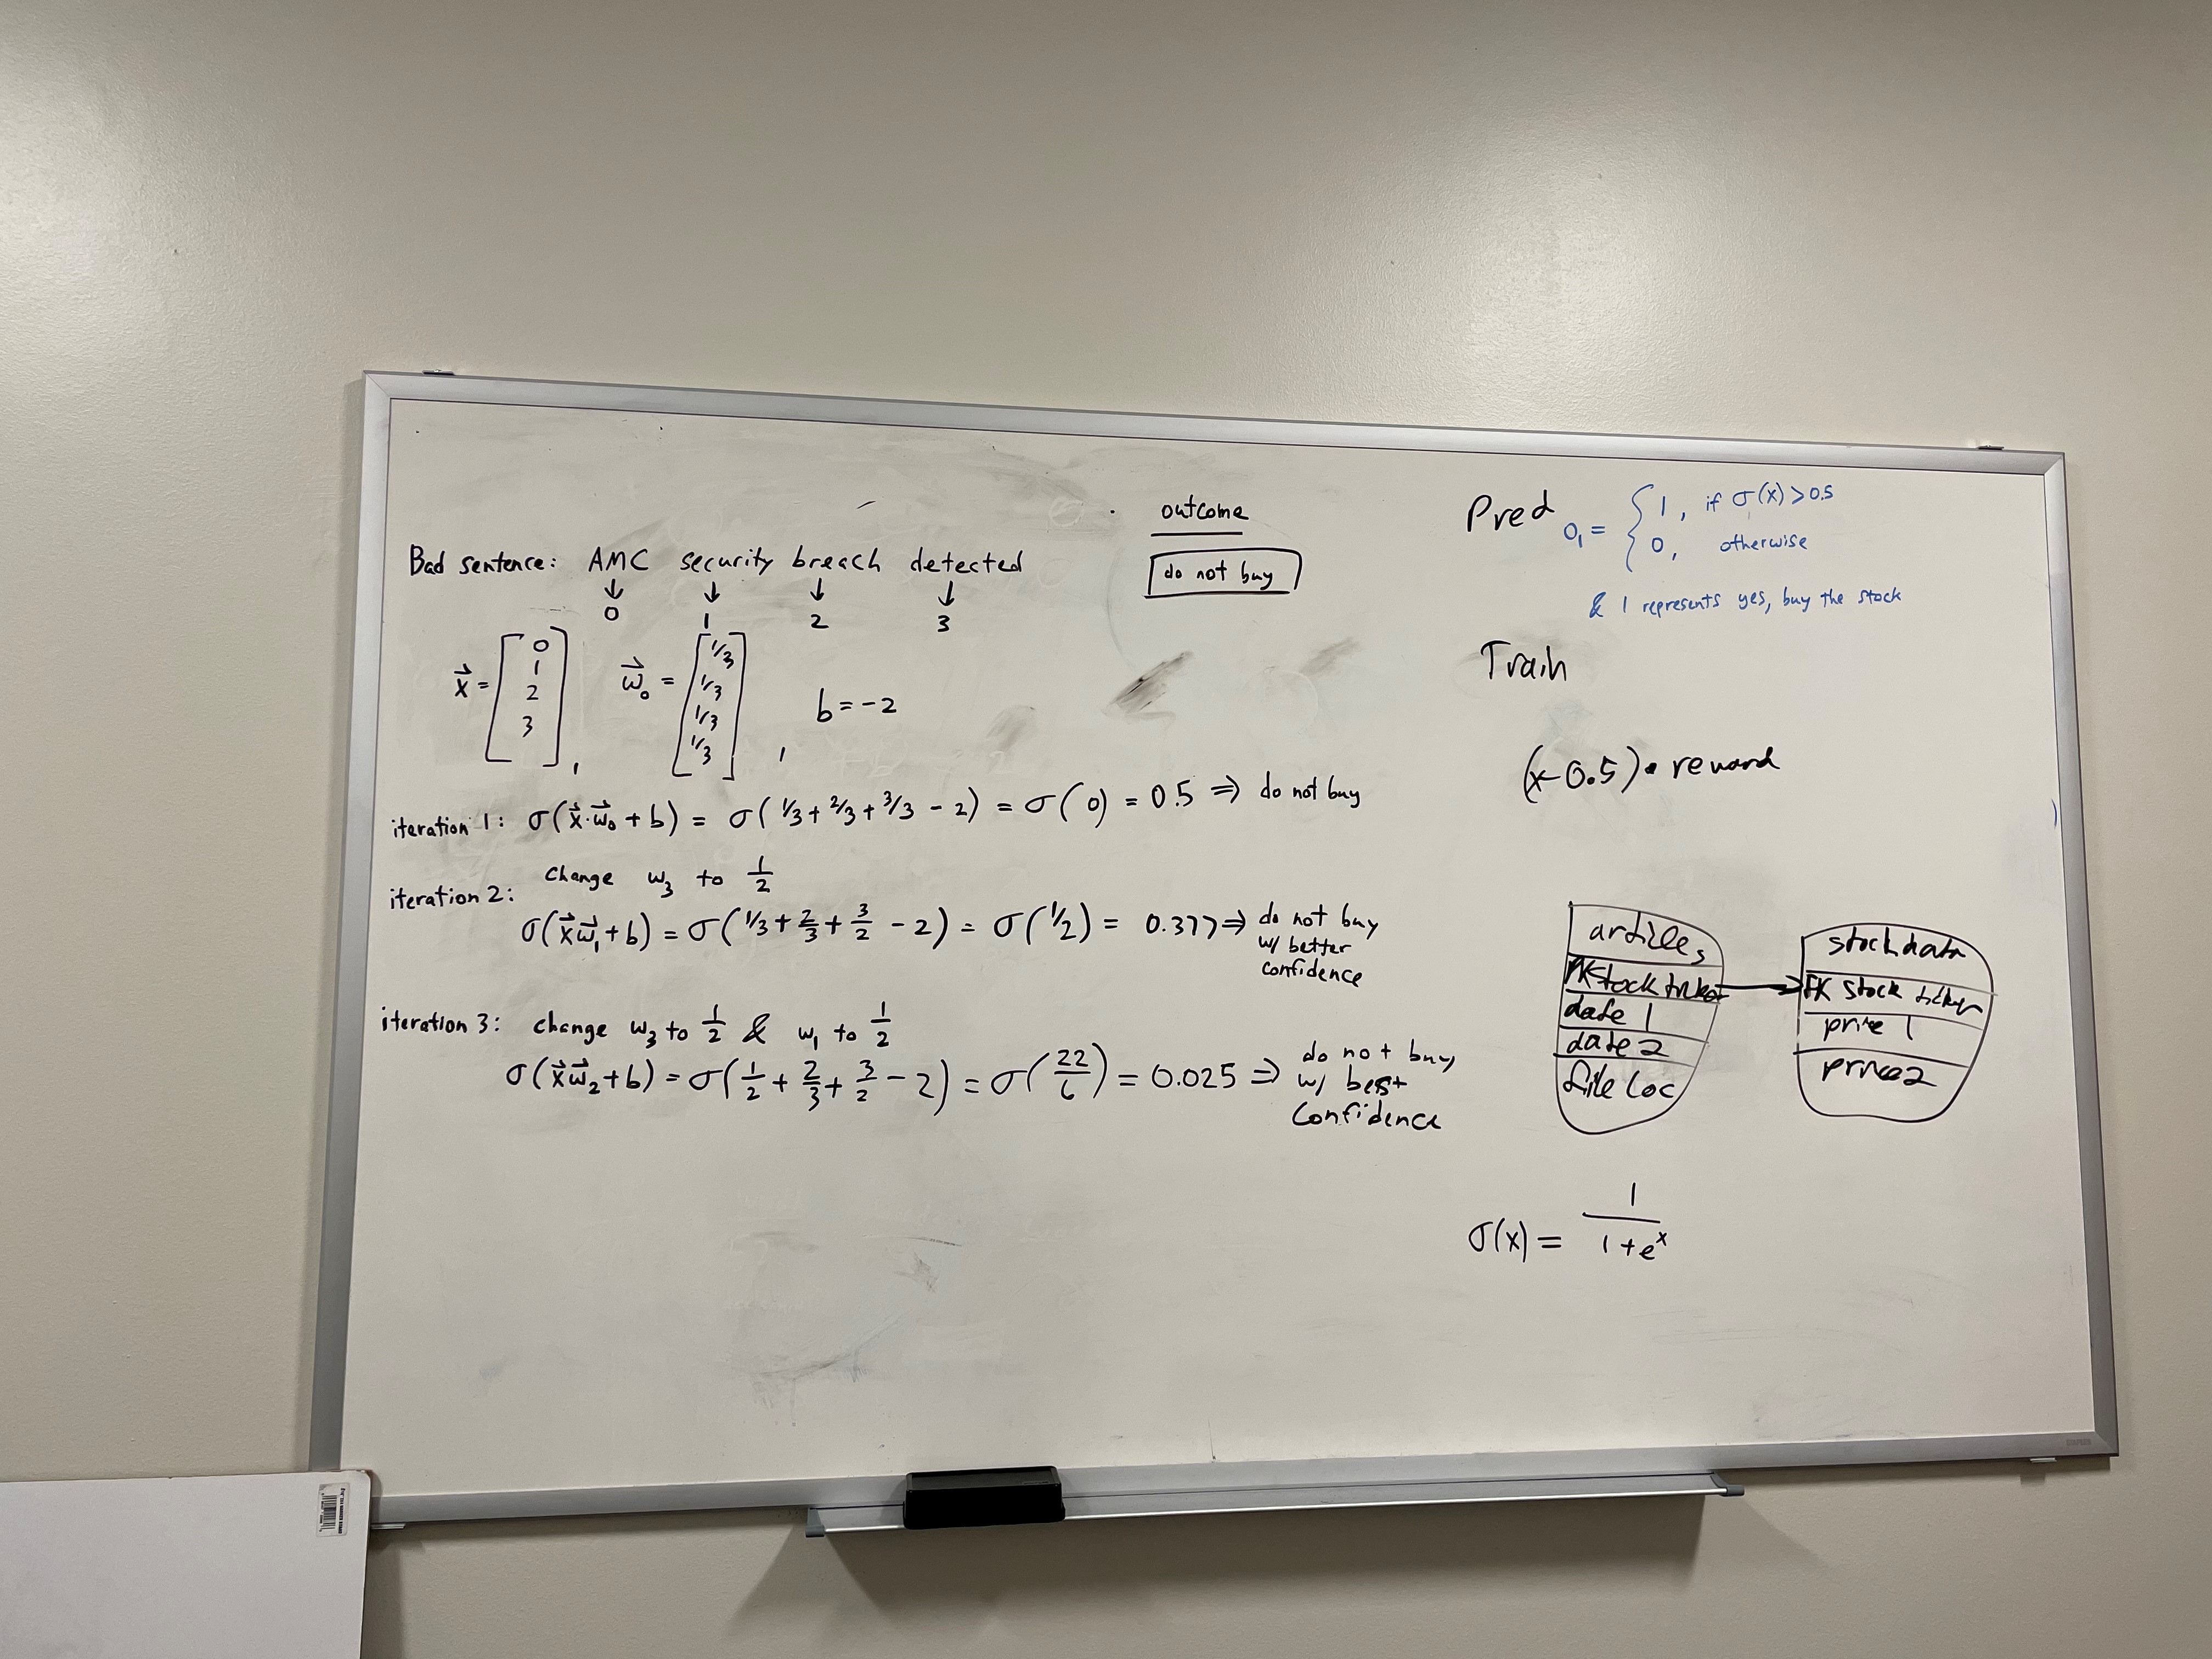 outcome
do not buy
Bad sentence: AMC security breach detected
↓ ↓ ↓ ↓
0 1 2 3
x⃗ = [0 1 2 3], w⃗₀ = [1/3 1/3 1/3 1/3], b = -2
iteration 1: σ(x⃗·w⃗₀ + b) = σ(1/3 + 2/3 + 3/3 - 2) = σ(0) = 0.5 ⇒ do not buy
iteration 2: change w₃ to 1/2
σ(x⃗w⃗₁ + b) = σ(1/3 + 2/3 + 3/2 - 2) = σ(1/2) = 0.377 ⇒ do not buy
w/ better
confidence
iteration 3: change w₃ to 1/2 & w₁ to 1/2
σ(x⃗w⃗₂ + b) = σ(1/2 + 2/3 + 3/2 - 2) = σ(22/6) = 0.025 ⇒ do not buy
w/ best
confidence
Pred O₁ = { 1, if σ(x) > 0.5
0, otherwise
& 1 represents yes, buy the stock
Train
(x-0.5)• reward
articles
stock ticker
date 1
date 2
file loc
stockdata
FK stock ticker
price 1
price 2
σ(x) = 1/(1 + eˣ)